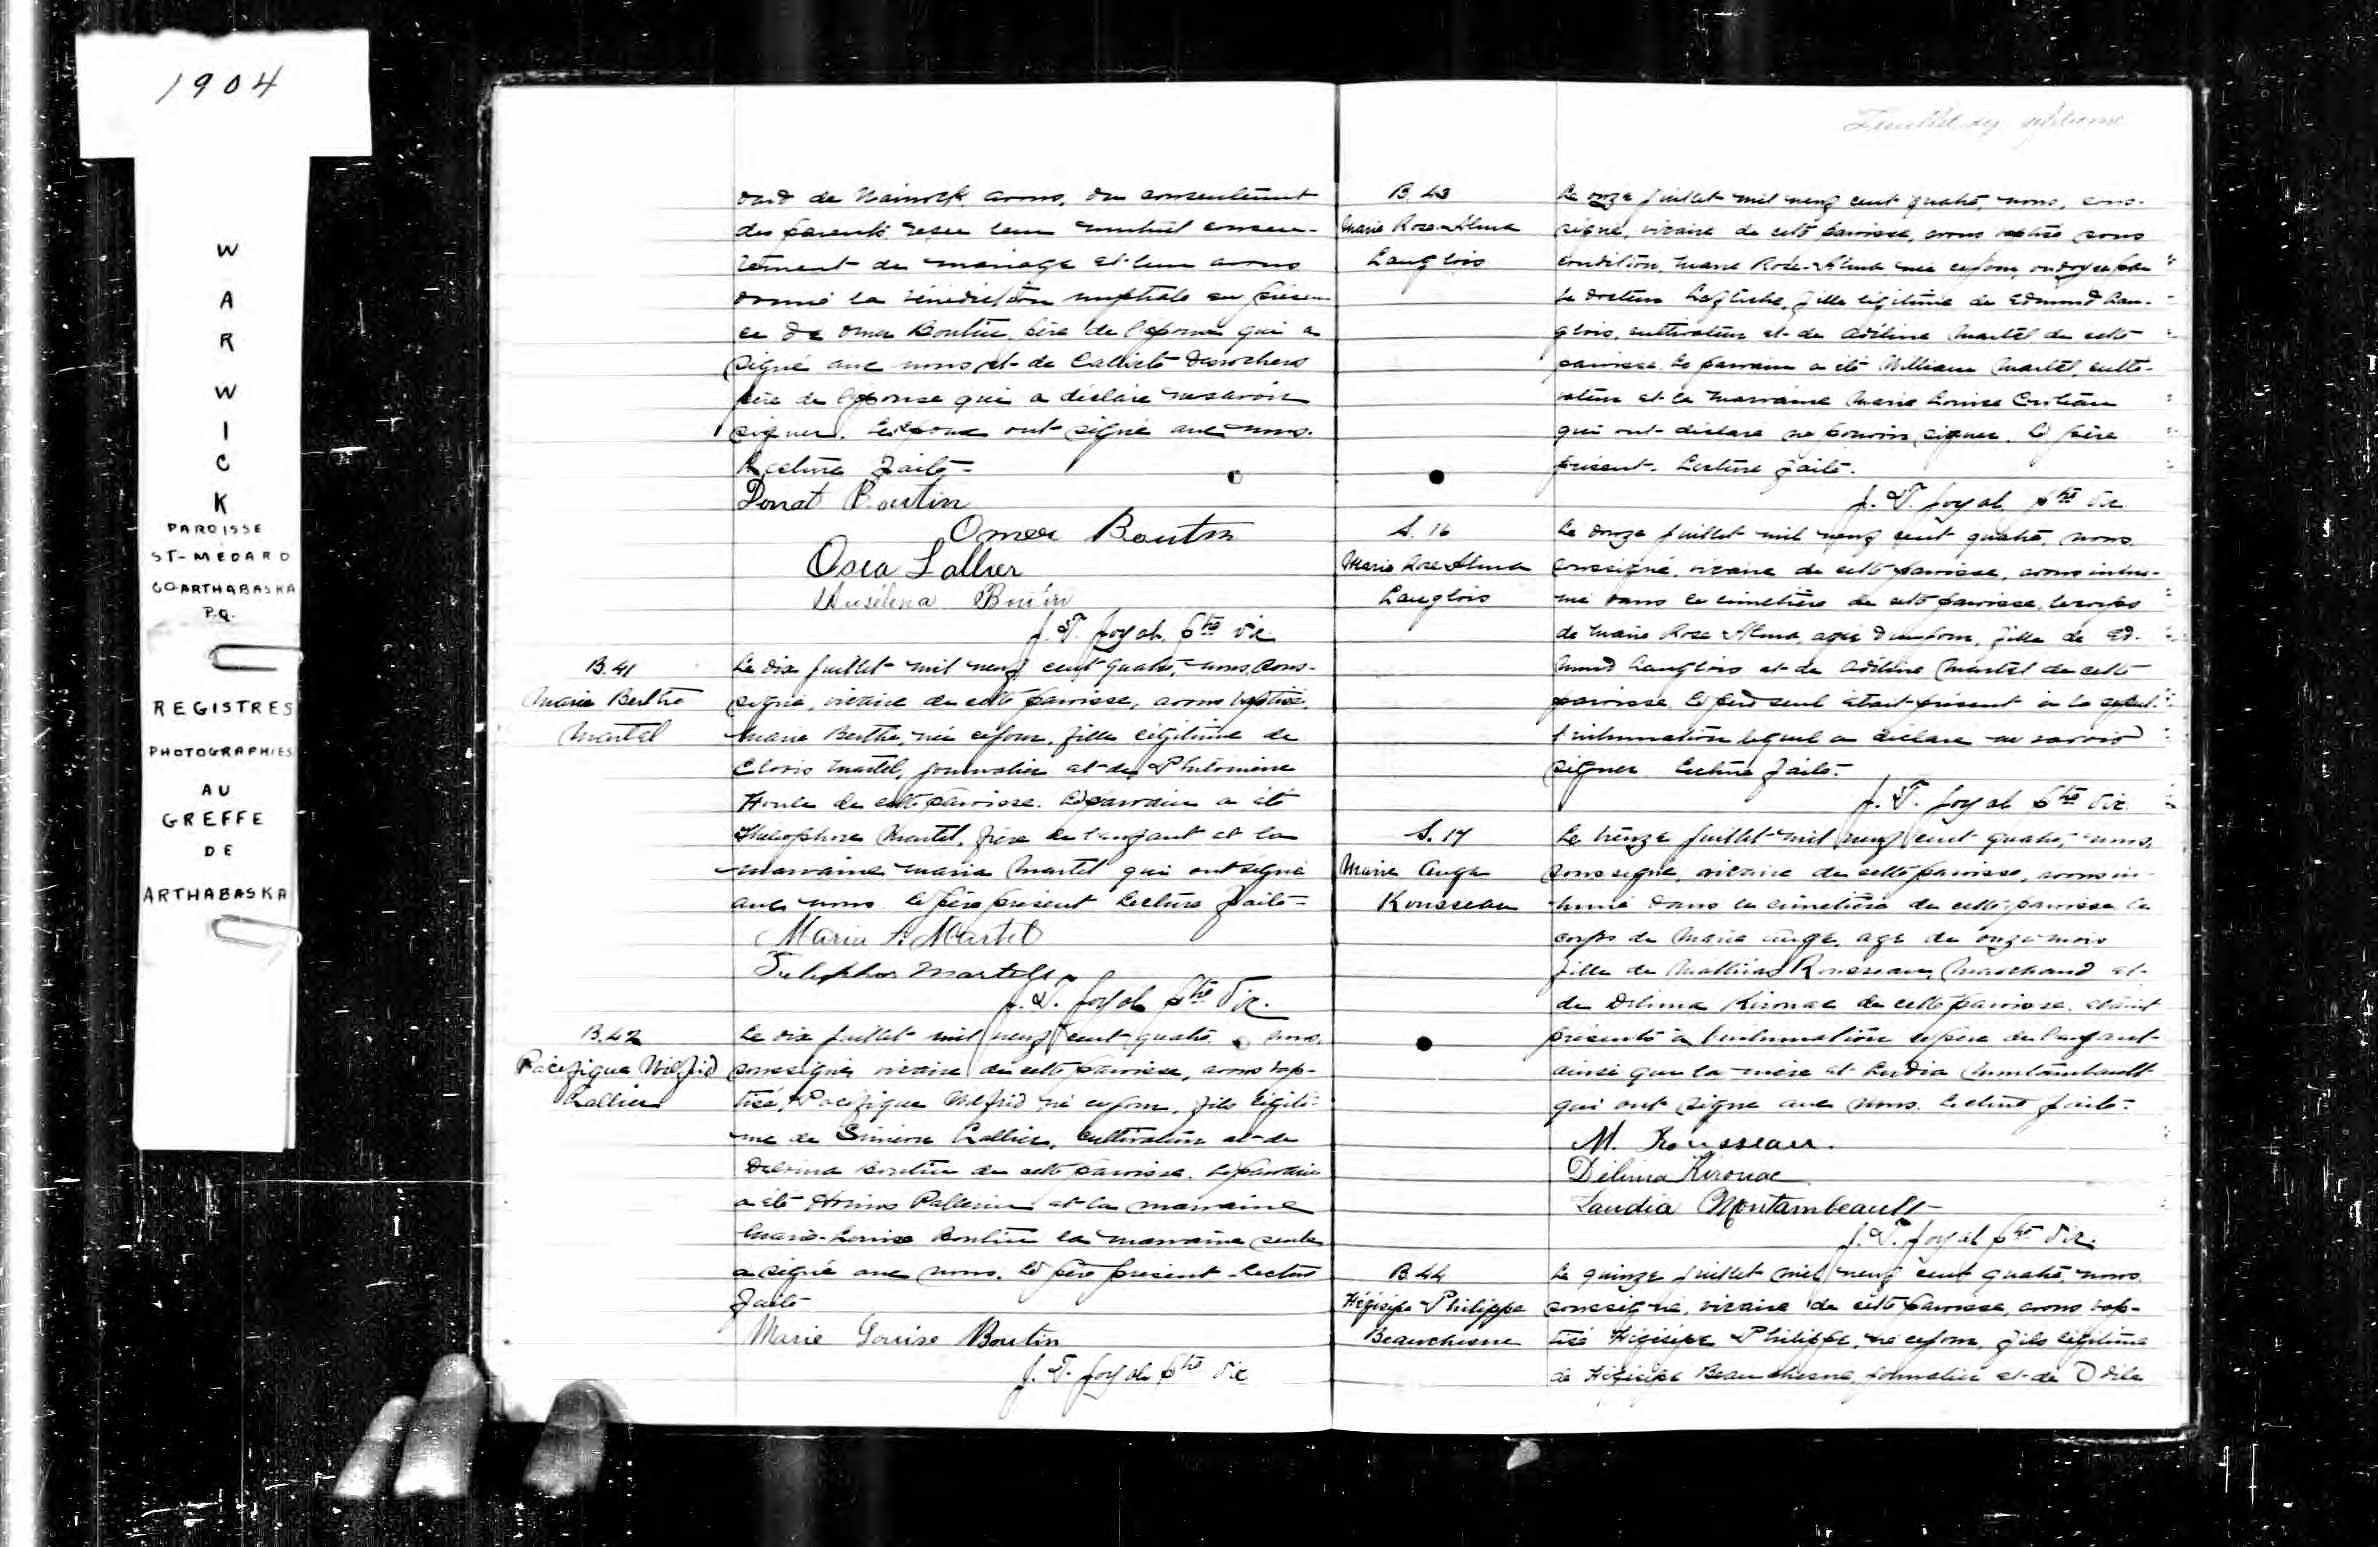 1904
WARWICK
PAROISSE
ST-MÉDARD
CO-ARTHABASKA
P.Q.
REGISTRES
PHOTOGRAPHIES
AU
GREFFE
DE
ARTHABASKA
de Warwick avons, du consentement
des parents reçu leur mutuel consen-
tement de mariage et leur avons
donné la bénédiction nuptiale en présen
ce de Omer Boutin, père de l'époux qui a
signé avec nous, et de Calixte Desrochers
père de l'épouse qui a déclaré ne savoir
signer. Les époux ont signé avec nous.
Lecture faite-
Donat Boutin
Omer Boutin
Osea Lallier
Boutin
J. T. Joyal, Ptre Vic
B. 41
Marie Berthe
Martel
Le dix juillet mil neuf cent quatre, nous, sous-
signé, vicaire de cette paroisse, avons baptisé,
Marie Berthe, née ce jour, fille légitime de
Clovis Martel, journalier et de Philomène
Houle de cette paroisse. Le parrain a été
Théléophore Martel, frère de l'enfant et la
marraine Maria Martel qui ont signé
avec nous. Le père présent Lecture faite-
Maria A. Martel
Telephor Martel
J. T. Joyal Ptre Vic.
B. 42
Pacifique Wilfrid
Lallier
Le dix juillet mil neuf cent quatre, nous,
soussigné, vicaire de cette paroisse, avons bap-
tisé, Pacifique Wilfrid né ce jour, fils légiti-
me de Siméon Lallier, cultivateur et de
Delvina Boutin de cette paroisse. Le parrain
a été et la marraine
Marie-Louise Boutin la marraine seule
a signé avec nous. Le père présent - Lecture
faite
Marie Louise Boutin
J. T. Joyal Ptre Vic
Feuillet septième
B. 43
Marie Rose-Alma
Langlois
Le onze juillet mil neuf cent quatre, nous, sous-
signé, vicaire de cette paroisse, avons baptisé sous
condition, Marie Rose-Alma née ce jour, ondoyée par
le docteur fille légitime de Edmond Lan-
glois, cultivateur et de Adéline Martel de cette
paroisse. Le parrain a été William Martel, culti-
vateur et la marraine Marie Louise Croteau
qui ont déclaré ne pouvoir signer. Le père
présent. Lecture faite.
J. T. Joyal, Ptre Vic
S. 16
Marie Rose Alma
Langlois
Le douze juillet mil neuf cent quatre, nous,
soussigné, vicaire de cette paroisse, avons inhu-
mé dans le cimetière de cette paroisse, le corps
de Marie Rose Alma, agée d'un jour, fille de Ed-
mond Langlois et de Adéline Martel de cette
paroisse. Le père seul était présent à la
l'inhumation lequel a déclaré ne savoir
signer Lecture faite.
J. T. Joyal Ptre Vic.
S. 17
Marie Ange
Rousseau
Le treize juillet mil neuf cent quatre, nous,
soussigné, vicaire de cette paroisse, avons in-
humé dans le cimetière de cette paroisse le
corps de Marie Ange, age de onze mois
fille de Mathias Rousseau, Marchand et
de Délima Kirouac de cette paroisse. étaient
présents à l'inhumation le père de l'enfant
ainsi que la mère et Montambault
qui ont signé avec nous. Lecture faite.
M. Rousseau.
Délima Kirouac
Laudia Montambeault
J. T. Joyal Ptre Vic.
B. 44
Hégisipe Philippe
Beauchesne
Le quinze juillet mil neuf cent quatre, nous,
soussigné, vicaire de cette paroisse, avons bap-
tisé Hégisipe Philippe, né ce jour, fils légitime
de Hégisipe Beauchesne, journalier et de Odile